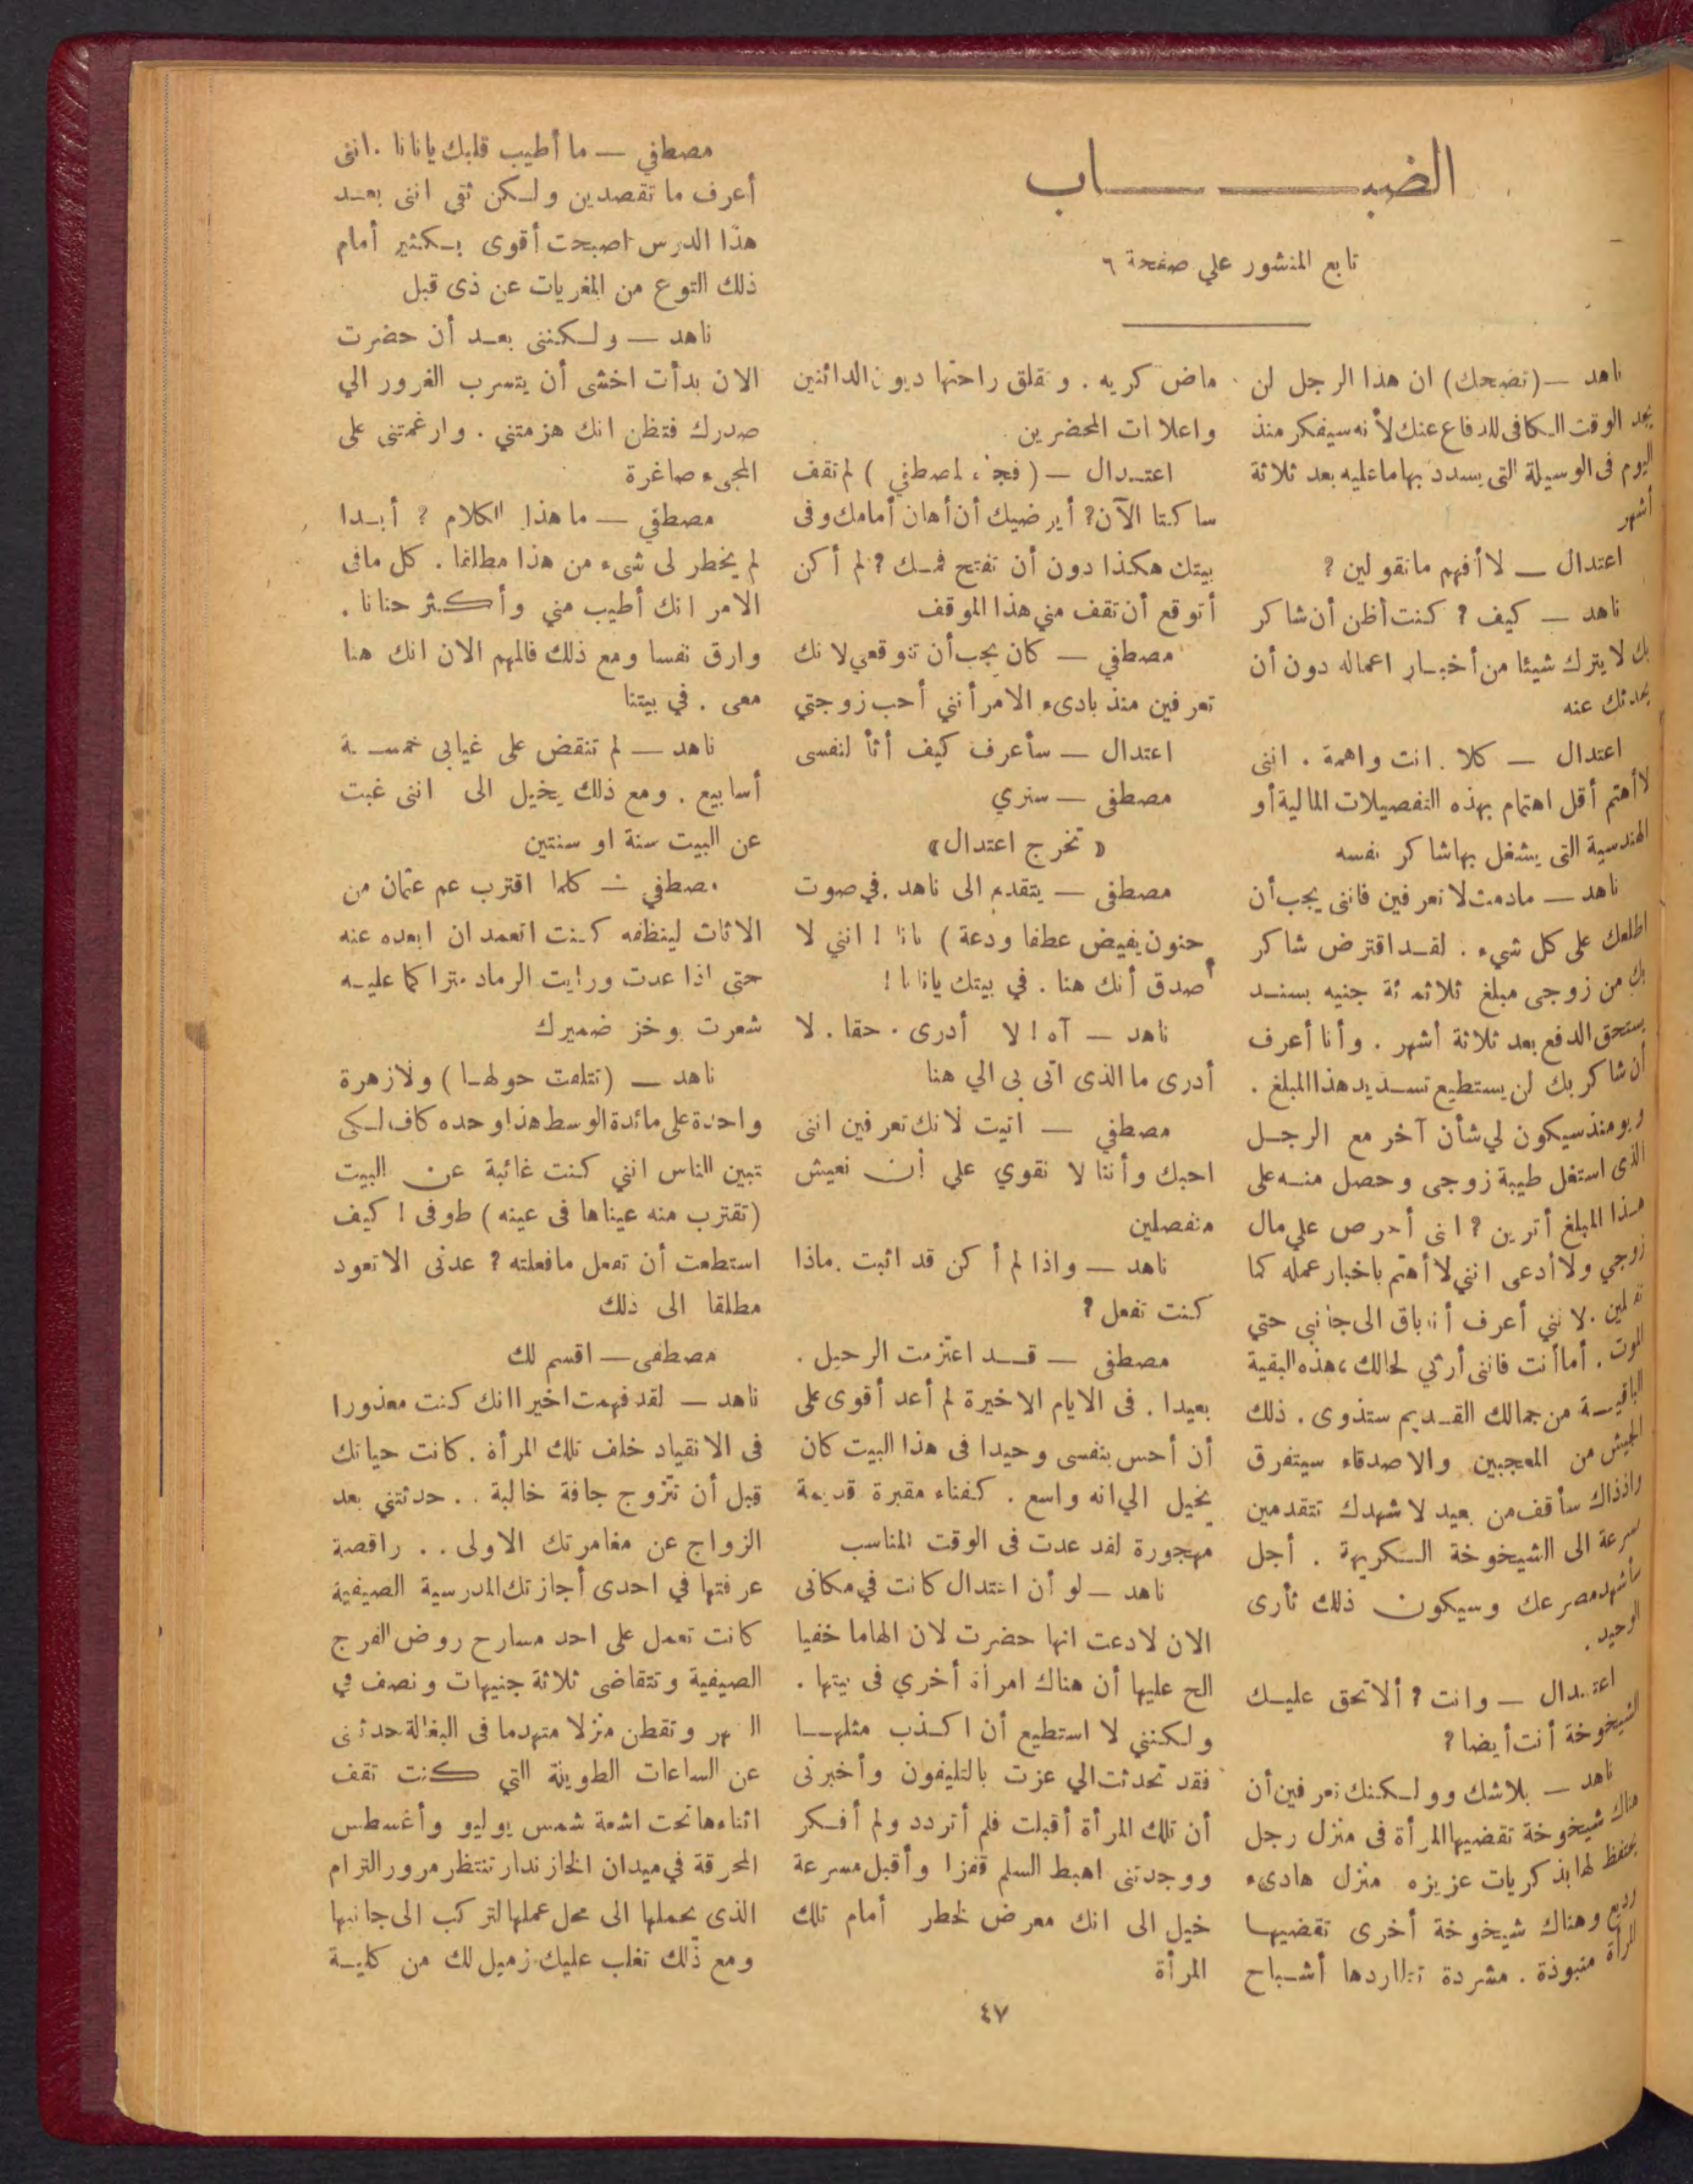 الضبـــــــاب
تابع المنشور علي صفحة ٦
ناهد — (تضحك) ان هذا الرجل لن
يجد الوقت الكافى للدفاع عنك لأنه سيفكر منذ
اليوم فى الوسيلة التى يسدد بها ما عليه بعد ثلاثة
أشهر
اعتدال — لا أفهم ما تقولين ?
ناهد — كيف ? كنت أظن أن شاكر
بك لا يترك شيئا من أخبار اعماله دون أن
يحدثك عنه
اعتدال — كلا . انت واهمة . اننى
لا أهتم أقل اهتمام بهذه التفصيلات المالية أو
الهندسية التى يشغل بها شاكر نفسه
ناهد — مادمت لا تعرفين فاننى يجب أن
اطلعك على كل شيء . لقد اقترض شاكر
بك من زوجى مبلغ ثلاثمائة جنيه بسند
يستحق الدفع بعد ثلاثة أشهر . وأنا أعرف
أن شاكر بك لن يستطيع تسديد هذا المبلغ .
ويومئذ سيكون لي شأن آخر مع الرجل
الذى استغل طيبة زوجى وحصل منه على
هذا المبلغ أترين ? انى أحرص علي مال
زوجي ولا أدعى انني لا أهتم باخبار عمله كما
تفعلين . لانني أعرف أنه باق الى جانبى حتي
الموت . أما أنت فاننى أرثي لحالك ، هذه البقية
الباقية من جمالك القديم ستذوى . ذلك
الجيش من المعجبين والاصدقاء سيتفرق
واذذاك سأقف من بعيد لاشهدك تتقدمين
بسرعة الى الشيخوخة الكريهة . أجل
سأشهد مصرعك وسيكون ذلك ثأرى
الوحيد .
اعتدال — وانت ? ألا تحق عليك
الشيخوخة أنت أيضا ?
ناهد — بلاشك وولكنك تعرفين أن
هناك شيخوخة تقضيها المرأة فى منزل رجل
يحتفظ لها بذكريات عزيزه منزل هادىء
وديع وهناك شيخوخة أخرى تقضيها
المرأة منبوذة . مشردة تطاردها أشباح
ماض كريه . وتقلق راحتها ديون الدائنين
واعلانات المحضرين
اعتدال — ( فجأة لمصطفي ) لم تقف
ساكتا الآن ? أيرضيك أن أهان أمامك وفى
بيتك هكذا دون أن تفتح فمك ? لم أكن
أتوقع أن تقف مني هذا الموقف
مصطفي — كان يجب أن تتوقعي لانك
تعرفين منذ بادىء الامر أنني أحب زوجتي
اعتدال — سأعرف كيف أثأر لنفسى
مصطفى — سنري
« تخرج اعتدال »
مصطفى — يتقدم الى ناهد . في صوت
حنون يفيض عطفا ودعة ) نانا ! انني لا
أصدق أنك هنا . في بيتك يا نانا !
ناهد — آه ! لا أدرى . حقا . لا
أدرى ما الذى اتى بى الي هنا
مصطفي — اتيت لانك تعرفين اننى
احبك وأننا لا نقوي علي أن نعيش
منفصلين
ناهد — واذا لم أكن قد اتيت . ماذا
كنت تفعل ?
مصطفى — قد اعتزمت الرحيل .
بعيدا . فى الايام الاخيرة لم أعد أقوى على
أن أحس بنفسى وحيدا فى هذا البيت كان
يخيل الي انه واسع . كفناء مقبرة قديمة
مهجورة لقد عدت فى الوقت المناسب
ناهد — لو أن اعتدال كانت في مكانى
الان لادعت انها حضرت لان الهاما خفيا
الح عليها أن هناك امرأة أخري فى بيتها .
ولكنني لا استطيع أن اكذب مثلها
فقد تحدثت الي عزت بالتليفون وأخبرنى
أن تلك المرأة أقبلت فلم أتردد ولم أفكر
ووجدتنى اهبط السلم قفزا وأقبل مسرعة
خيل الى انك معرض لخطر أمام تلك
المرأة
مصطفي — ما أطيب قلبك يا نانا . اننى
أعرف ما تقصدين ولكن ثقى اننى بعد
هذا الدرس اصبحت أقوى بكثير أمام
ذلك النوع من المغريات عن ذى قبل
ناهد — ولكننى بعد أن حضرت
الان بدأت اخشى أن يتسرب الغرور الي
صدرك فتظن انك هزمتني . وارغمتنى على
المجىء صاغرة
مصطفي — ما هذا الكلام ? أبدا
لم يخطر لى شىء من هذا مطلقا . كل مافى
الامر انك أطيب مني وأكثر حنانا .
وارق نفسا ومع ذلك فالمهم الان انك هنا
معى . في بيتنا
ناهد — لم تنقض على غيابى خمسة
أسابيع . ومع ذلك يخيل الى اننى غبت
عن البيت سنة او سنتين
مصطفي — كلما اقترب عم عثمان من
الاثاث لينظفه كنت اتعمد ان ابعده عنه
حتى اذا عدت ورايت الرماد متراكما عليه
شعرت بوخز ضميرك
ناهد — (تتلفت حولها) ولازهرة
واحدة على مائدة الوسط هذا وحده كاف لكى
تبين للناس انني كنت غائبة عن البيت
(تقترب منه عيناها فى عينه) طوفى ! كيف
استطعت أن تفعل مافعلته ? عدنى الا تعود
مطلقا الى ذلك
مصطفى — اقسم لك
ناهد — لقد فهمت اخيرا انك كنت معذورا
فى الانقياد خلف تلك المرأة . كانت حياتك
قبل أن تتزوج جافة خالية . . حدثتني بعد
الزواج عن مغامرتك الاولى . . راقصة
عرفتها في احدى أجازتك المدرسية الصيفية
كانت تعمل على احد مسارح روض الفرج
الصيفية وتتقاضى ثلاثة جنيهات ونصف في
الشهر وتقطن منزلا متهدما فى البغالة حدثتنى
عن الساعات الطويلة التي كنت تقف
اثناءها تحت اشعة شمس يوليو وأغسطس
المحرقة في ميدان الخازندار تنتظر مرور الترام
الذى يحملها الى محل عملها لتركب الى جانبها
ومع ذلك تغلب عليك زميل لك من كلية
٤٧